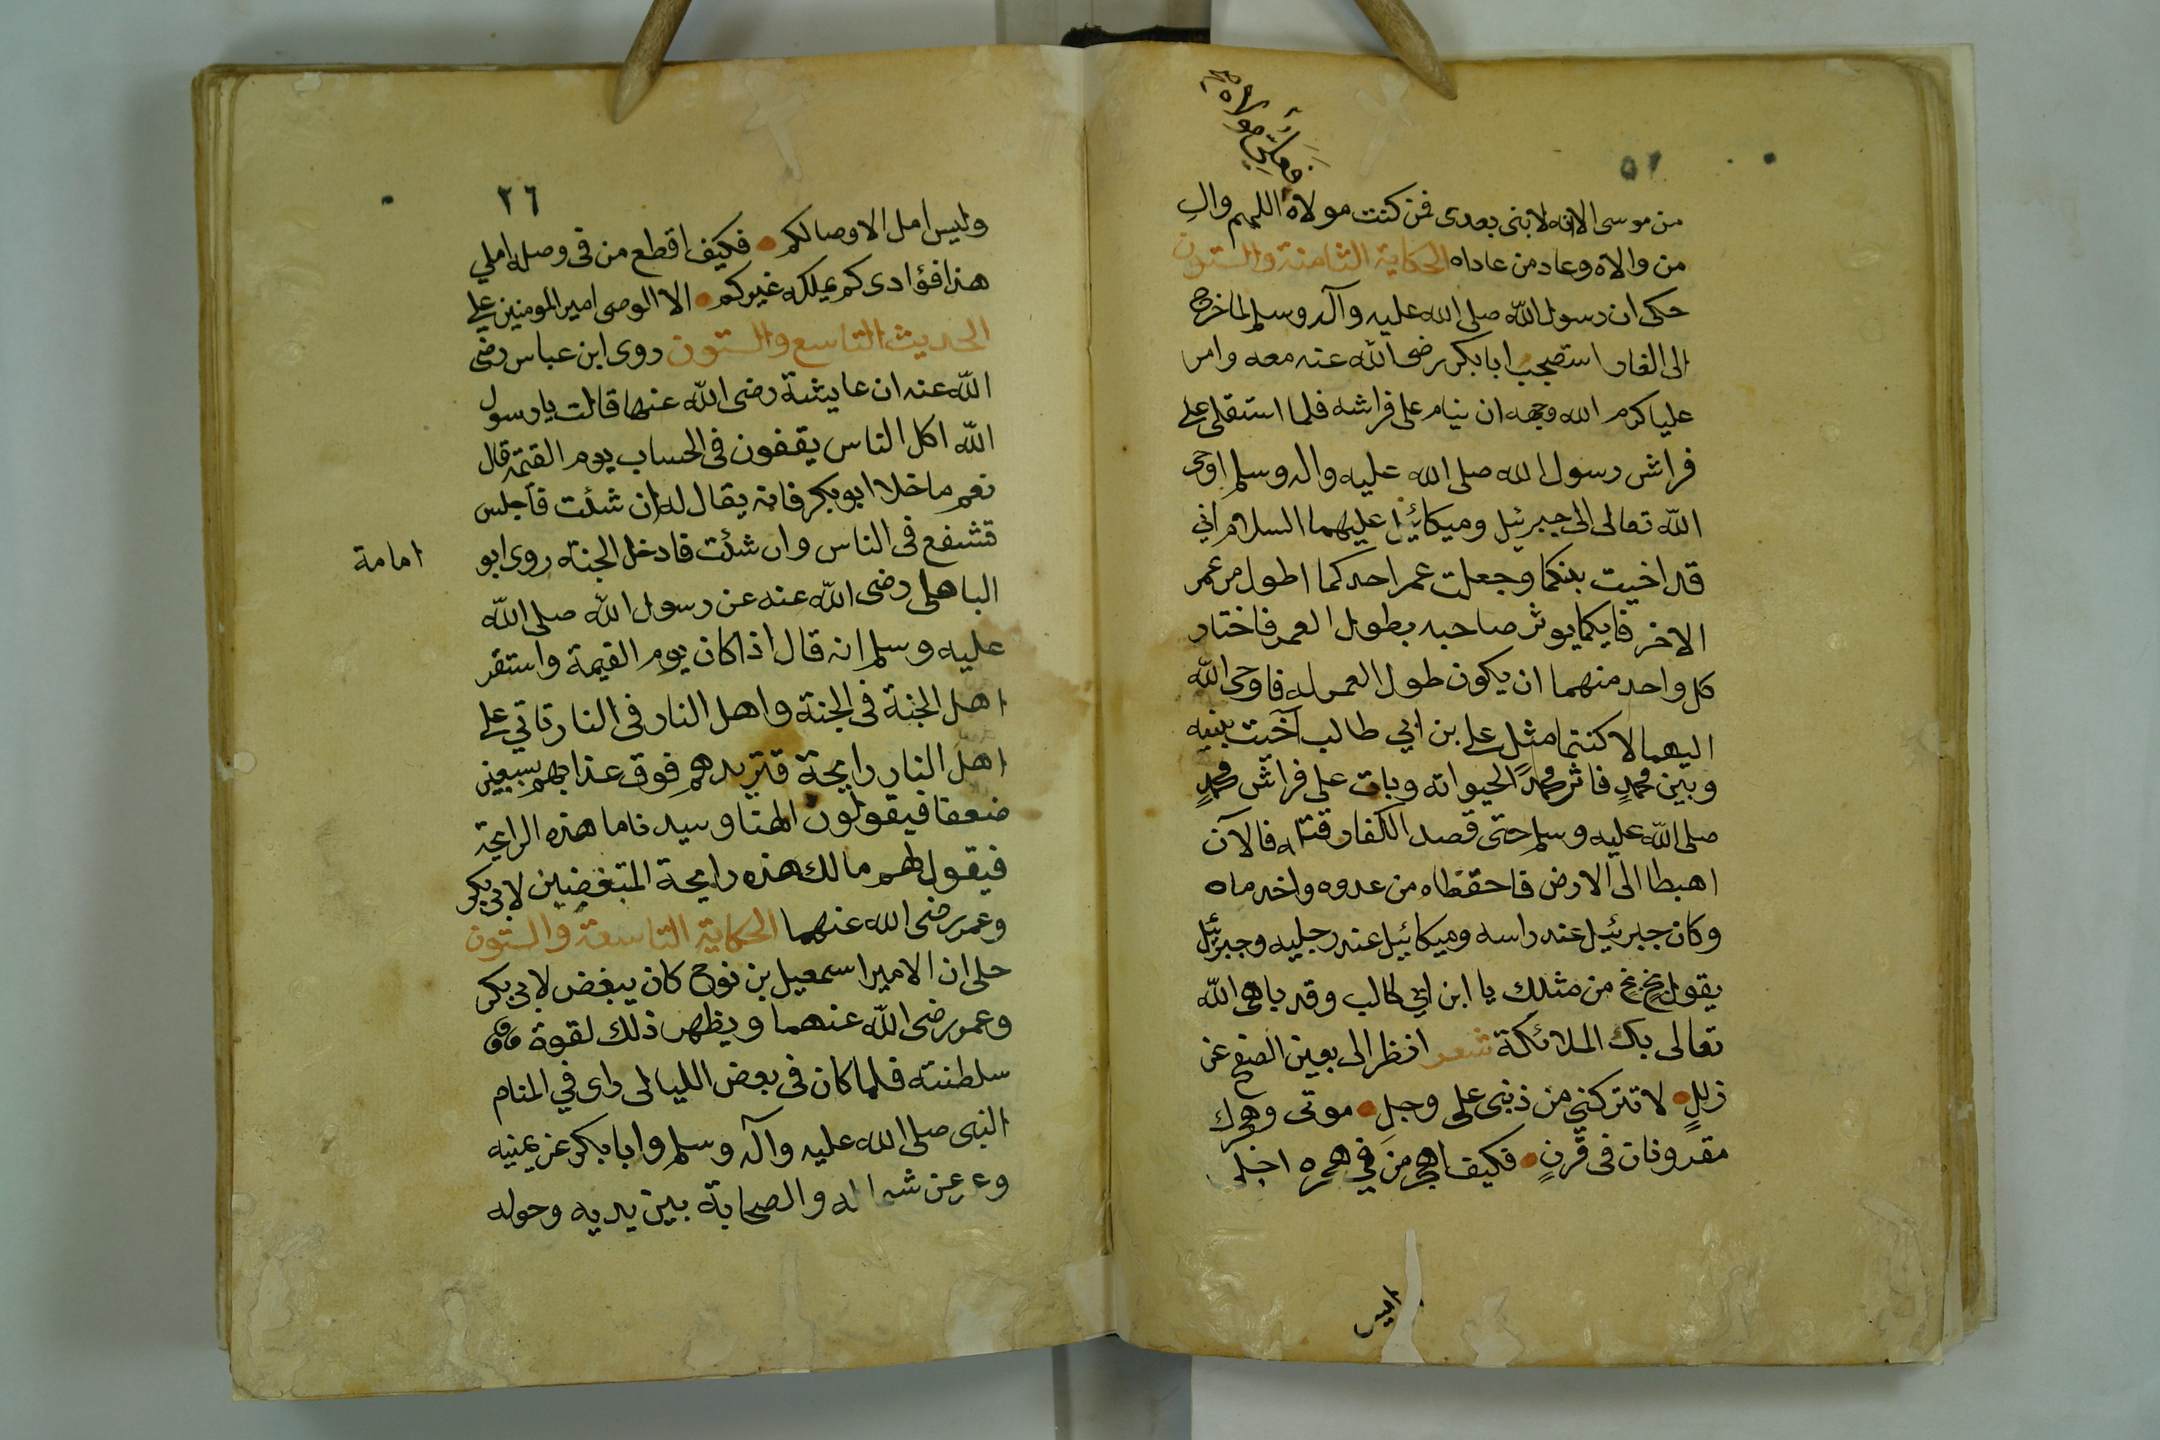 ٥١
فعلي مولاه
من موسى الا انه لا نبى بعدى فمن كنت مولاه اللهم وال
من والاه وعاد من عاداه الحكاية الثامنة والستون
حكى ان رسول الله صلى الله عليه وآله وسلم لما خرج
الى الغار استصحب ابا بكر رضى الله عنه معه وامر
عليا كرم الله وجهه ان ينام على فراشه فلما استقلى على
فراش رسول الله صلى الله عليه واله وسلم اوحى
الله تعالى الى جبرئيل وميكائيل عليهما السلام اني
قد اخيت بينكما وجعلت عمر احدكما اطول من عمر
الاخر فايكما يوثر صاحبه بطول العمر فاختار
كل واحد منهما ان يكون طول العمر له فاوحى الله
اليهما الا كنتما مثل على بن ابي طالب آخيت بينه
وبين محمدٍ فاثر محمدً الحيواته وبات على فراش محمدٍ
صلى الله عليه وسلم حتى قصد الكفار قتله فالآن
اهبطا الى الارض فاحفظاه من عدوه واخدماه
وكان جبرئيل عند راسه وميكائيل عند رجليه وجبرئيل
يقول بخ بخ من مثلك يا ابن ابي طالب وقد باهى الله
تعالى بك الملائكة شعر انظر الى بعين الصفح عن
زللٍ لا تتركني من ذنبى على وجلِ موتى وهجرك
مقرونان فى قرنٍ فكيف اهجر من في هجره اجلى
وليس
٢٦
وليس امل الا وصالكم فكيف اقطع من فى وصله املي
هذا فؤادى كم يملكه غيركم الا الوصى امير المومنين علي
الحديث التاسع والستون روى ابن عباس رضى
الله عنه ان عايشة رضى الله عنها قالت يا رسول
الله اكل الناس يقفون فى الحساب يوم القيمة قال
نعم ما خلا ابو بكر فانه يقال له ان شئت فاجلس
تشفع فى الناس وان شئت فادخل الجنة روى ابو
امامة
الباهلى رضى الله عنه عن رسول الله صلى الله
عليه وسلم انه قال اذا كان يوم القيمة واستقر
اهل الجنة فى الجنة واهل النار فى النار تاتي على
اهل النار رايحة فتزيدهم فوق عذابهم سبعين
ضعفا فيقولون الهنا وسيدنا ما هذه الرايحة
فيقول لهم مالك هذه رايحة المتبغضين لابى بكر
وعمر رضى الله عنهما الحكاية التاسعة والستون
حكى ان الامير اسمعيل بن نوح كان يبغض لابى بكر
وعمر رضى الله عنهما ويظهر ذلك لقوة
سلطنته فلما كان فى بعض الليالى راى في المنام
النبى صلى الله عليه وآله وسلم وابا بكر عن يمنيه
وع عن شماله والصحابة بين يديه وحوله